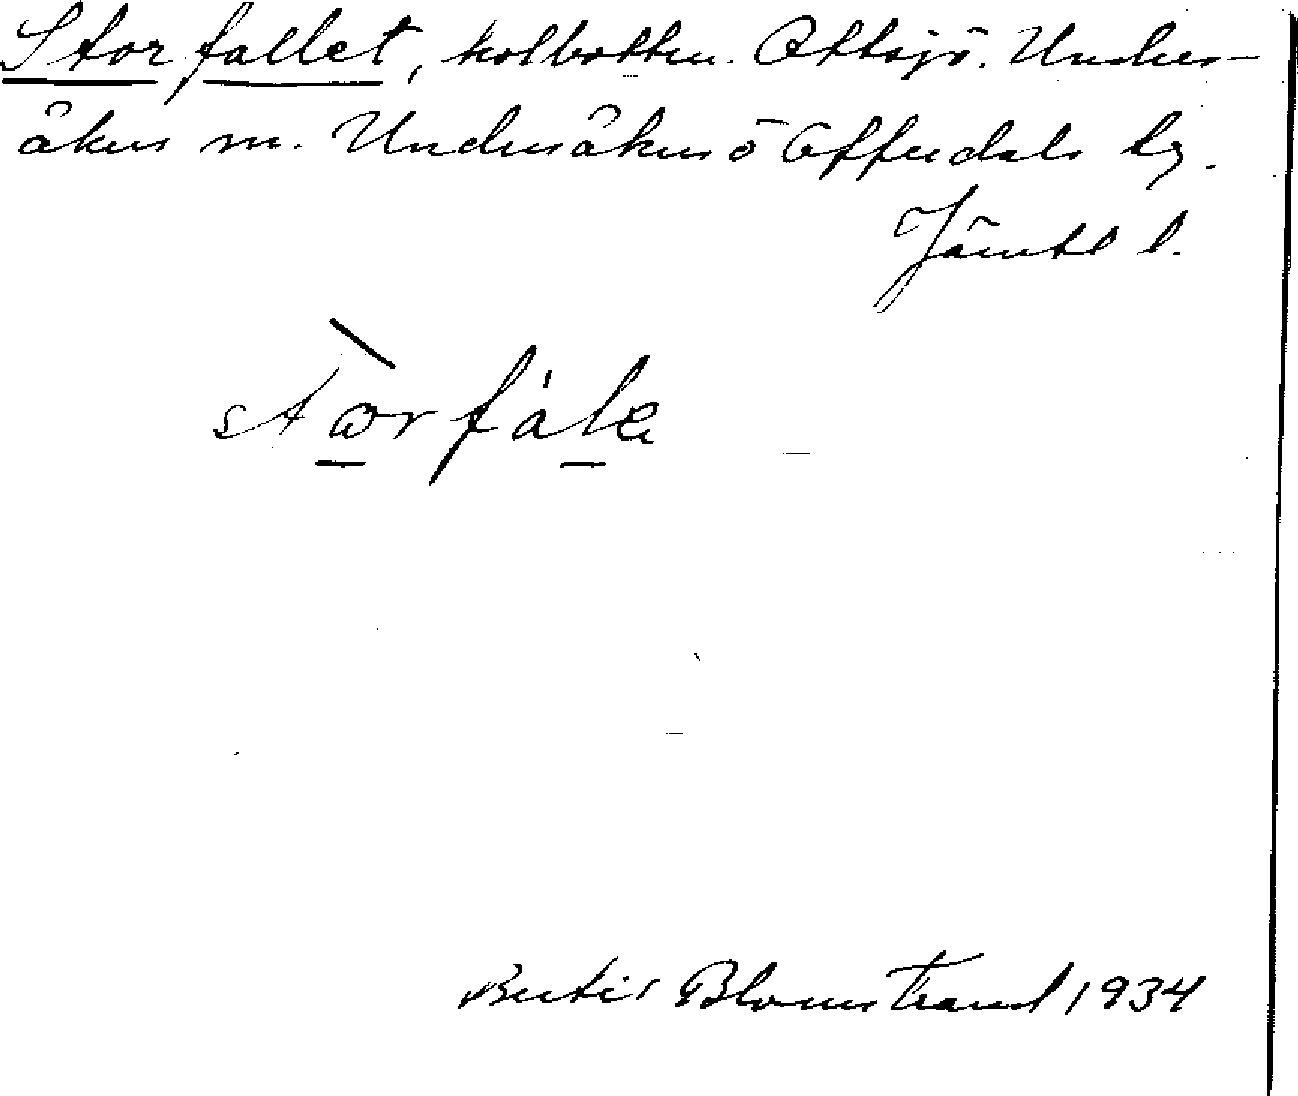 Storfallet, kolbotten. Ottsjö. Unders-
åkers sn. Undersåkers o Offerdals tg.
Jämtl l.
stωrfále
Bertil Blomstrand 1934